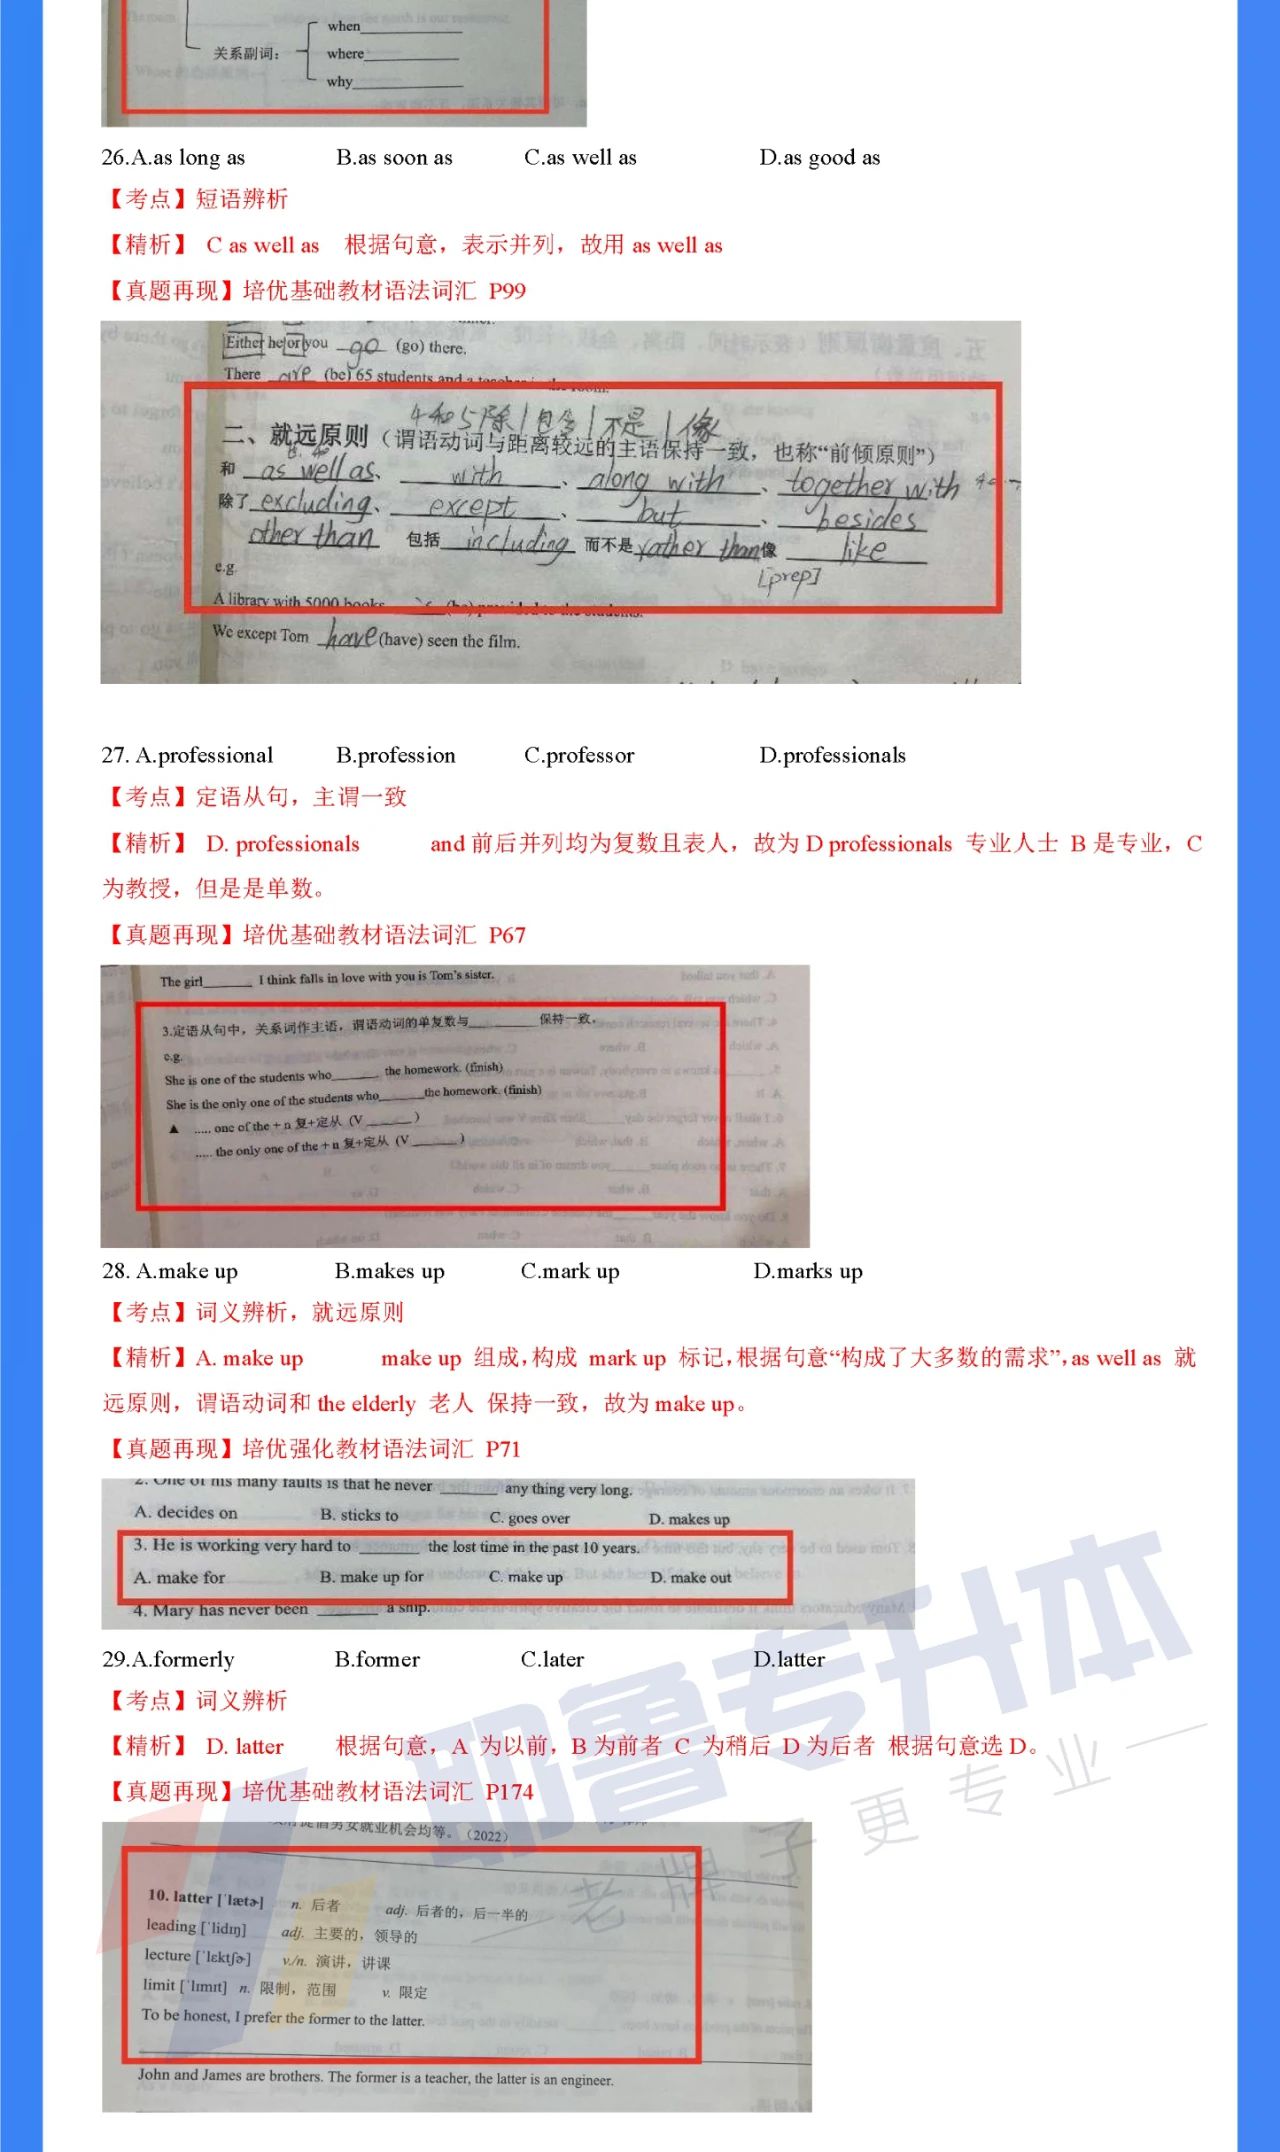 when
关系副词：
where
why
26.A.as long as B.as soon as C.as well as D.as good as
【考点】短语辨析
【精析】 C as well as 根据句意，表示并列，故用 as well as
【真题再现】培优基础教材语法词汇 P99
Either he or you go (go) there.
There are (be) 65 students and a teacher in the room.
4和5除|包含|不是|像
二、就远原则（谓语动词与距离较远的主语保持一致，也称“前倾原则”）
和 as well as、 with 、along with 、together with
除了 excluding、 except 、 but 、 besides
other than 包括 including 而不是 rather than 像 like
[prep]
e.g.
A library with 5000 books is (be) provided to the students.
We except Tom have (have) seen the film.
27. A.professional B.profession C.professor D.professionals
【考点】定语从句，主谓一致
【精析】 D. professionals and 前后并列均为复数且表人，故为 D professionals 专业人士 B 是专业，C
为教授，但是是单数。
【真题再现】培优基础教材语法词汇 P67
The girl______ I think falls in love with you is Tom's sister.
3.定语从句中，关系词作主语，谓语动词的单复数与________保持一致。
e.g.
She is one of the students who______ the homework. (finish)
She is the only one of the students who______the homework. (finish)
▲ ..... one of the + n 复+定从（V______）
..... the only one of the + n 复+定从（V______）
28. A.make up B.makes up C.mark up D.marks up
【考点】词义辨析，就远原则
【精析】A. make up make up 组成，构成 mark up 标记，根据句意“构成了大多数的需求”，as well as 就
远原则，谓语动词和 the elderly 老人 保持一致，故为 make up。
【真题再现】培优强化教材语法词汇 P71
2. One of his many faults is that he never ______ any thing very long.
A. decides on B. sticks to C. goes over D. makes up
3. He is working very hard to ______ the lost time in the past 10 years.
A. make for B. make up for C. make up D. make out
4. Mary has never been ______ a ship.
29.A.formerly B.former C.later D.latter
【考点】词义辨析
【精析】 D. latter 根据句意，A 为以前，B 为前者 C 为稍后 D 为后者 根据句意选 D。
【真题再现】培优基础教材语法词汇 P174
耶鲁专升本
老牌子更专业
提倡男女就业机会均等。（2022）
10. latter [ˈlætɚ] n. 后者 adj. 后者的，后一半的
leading [ˈlidɪŋ] adj. 主要的，领导的
lecture [ˈlɛktʃɚ] v./n. 演讲，讲课
limit [ˈlɪmɪt] n. 限制，范围 v. 限定
To be honest, I prefer the former to the latter.
John and James are brothers. The former is a teacher, the latter is an engineer.